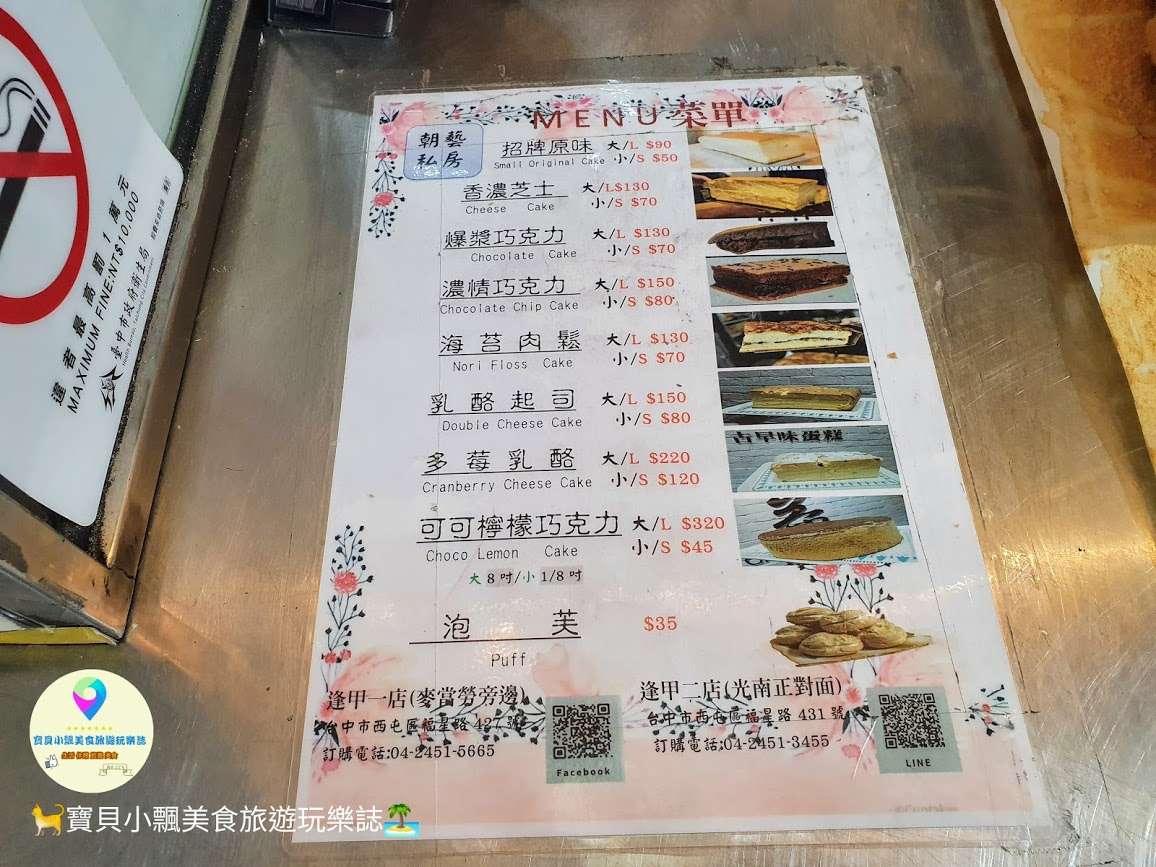 MENU菜單
朝藝
私房
招牌原味 大/L $90
Small Original Cake 小/S $50
香濃芝士 大/L$130
Cheese Cake 小/S $70
爆漿巧克力 大/L $130
Chocolate Cake 小/S $70
濃情巧克力 大/L $150
Chocolate Chip Cake 小/S $80
海苔肉鬆 大/L $130
Nori Floss Cake 小/S $70
乳酪起司 大/L $150
Double Cheese Cake 小/S $80
古早味蛋糕
多莓乳酪 大/L $220
Cranberry Cheese Cake 小/S $120
可可檸檬巧克力 大/L $320
Choco Lemon Cake 小/S $45
大 8 吋/小 1/8 吋
泡芙 $35
Puff
逢甲一店(麥當勞旁邊)
台中市西屯區福星路 427 號
訂購電話:04-2451-5665
Facebook
逢甲二店(光南正對面)
台中市西屯區福星路 431 號
訂購電話:04-2451-3455
LINE
違者最高罰1萬元
MAXIMUM FINE:NT$10,000
臺中市政府衛生局
寶貝小飄美食旅遊玩樂誌
寶貝小飄美食旅遊玩樂誌